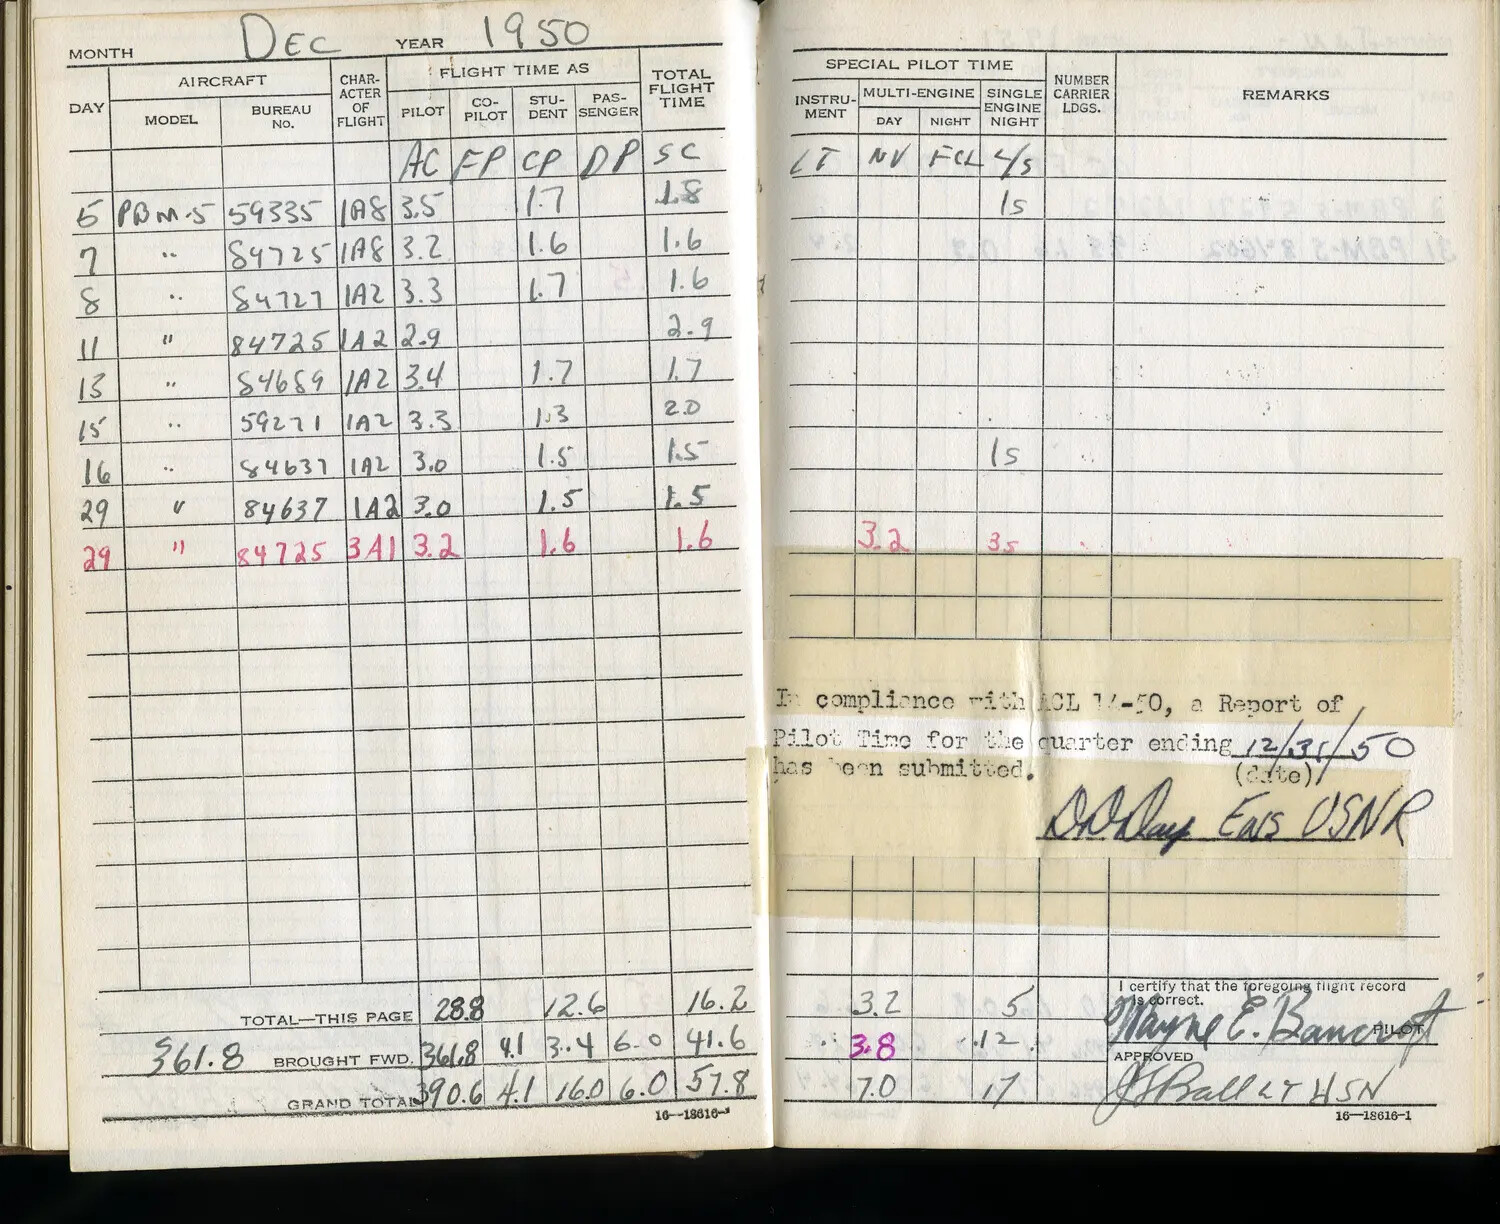 MONTH DEC YEAR 1950
DAY AIRCRAFT CHAR-ACTER OF FLIGHT FLIGHT TIME AS TOTAL FLIGHT TIME
MODEL BUREAU NO. PILOT CO-PILOT STU-DENT PAS-SENGER
AC FP CP DP SC
5 PBM-5 59335 1A8 3.5 1.7 1.8
7 " 84725 1A8 3.2 1.6 1.6
8 " 84727 1A2 3.3 1.7 1.6
11 " 84725 1A2 2.9 2.9
13 " 84689 1A2 3.4 1.7 1.7
15 " 59271 1A2 3.3 1.3 2.0
16 " 84637 1A2 3.0 1.5 1.5
29 " 84637 1A2 3.0 1.5 1.5
29 " 84725 3A1 3.2 1.6 1.6
TOTAL—THIS PAGE 28.8 12.6 16.2
361.8 BROUGHT FWD. 361.8 4.1 3.4 6.0 41.6
GRAND TOTAL 390.6 4.1 16.0 6.0 57.8
16—18616-1
SPECIAL PILOT TIME NUMBER CARRIER LDGS. REMARKS
INSTRU-MENT MULTI-ENGINE SINGLE ENGINE NIGHT
DAY NIGHT
LT NV FCL L/S
1s
1s
3.2 3s
In compliance with ACL 14-50, a Report of
Pilot Time for the quarter ending 12/31/50
has been submitted. (date)
DDDay Ens USNR
I certify that the foregoing flight record
is correct.
3.2 5
Wayne E. Bancroft PILOT
3.8 12
APPROVED
7.0 17 JS Ball LT USN
16—18616-1